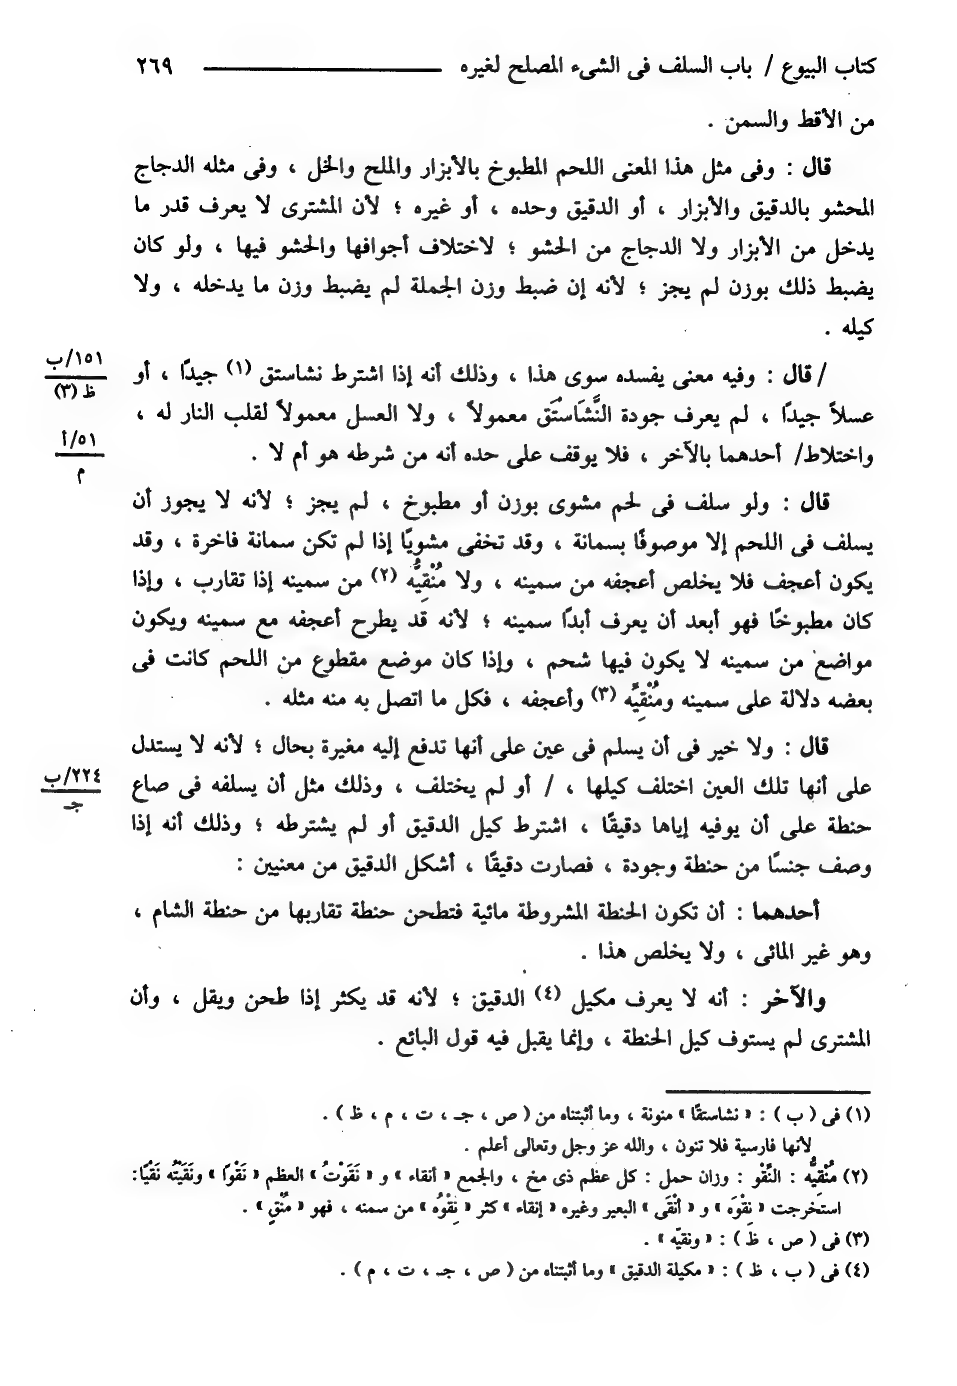 كتاب البيوع / باب السلف فى الشىء المصلح لغيره ٢٦٩
من الأقط والسمن .
قال : وفى مثل هذا المعنى اللحم المطبوخ بالأبزار والملح والخل ، وفى مثله الدجاج
المحشو بالدقيق والأبزار ، أو الدقيق وحده ، أو غيره ؛ لأن المشترى لا يعرف قدر ما
يدخل من الأبزار ولا الدجاج من الحشو ؛ لاختلاف أجوافها والحشو فيها ، ولو كان
يضبط ذلك بوزن لم يجز ؛ لأنه إن ضبط وزن الجملة لم يضبط وزن ما يدخله ، ولا
كيله .
١٥١/ب
ظ (٣)
/ قال : وفيه معنى يفسده سوى هذا ، وذلك أنه إذا اشترط نشاستق (١) جيدًا ، أو
عسلاً جيدًا ، لم يعرف جودة النَّشَاسْتَق معمولاً ، ولا العسل معمولاً لقلب النار له ،
٥١/أ
م
واختلاط/ أحدهما بالآخر ، فلا يوقف على حده أنه من شرطه هو أم لا .
قال : ولو سلف فى لحم مشوى بوزن أو مطبوخ ، لم يجز ؛ لأنه لا يجوز أن
يسلف فى اللحم إلا موصوفًا بسمانة ، وقد تخفى مشويًا إذا لم تكن سمانة فاخرة ، وقد
يكون أعجف فلا يخلص أعجفه من سمينه ، ولا مُنْقِيُّه (٢) من سمينه إذا تقارب ، وإذا
كان مطبوخًا فهو أبعد أن يعرف أبدًا سمينه ؛ لأنه قد يطرح أعجفه مع سمينه ويكون
مواضع من سمينه لا يكون فيها شحم ، وإذا كان موضع مقطوع من اللحم كانت فى
بعضه دلالة على سمينه ومُنْقِيِّه (٣) وأعجفه ، فكل ما اتصل به منه مثله .
قال : ولا خير فى أن يسلم فى عين على أنها تدفع إليه مغيرة بحال ؛ لأنه لا يستدل
٢٢٤/ب
جـ
على أنها تلك العين اختلف كيلها ، / أو لم يختلف ، وذلك مثل أن يسلفه فى صاع
حنطة على أن يوفيه إياها دقيقًا ، اشترط كيل الدقيق أو لم يشترطه ؛ وذلك أنه إذا
وصف جنسًا من حنطة وجودة ، فصارت دقيقًا ، أشكل الدقيق من معنيين :
أحدهما : أن تكون الحنطة المشروطة مائية فتطحن حنطة تقاربها من حنطة الشام ،
وهو غير المائى ، ولا يخلص هذا .
والآخر : أنه لا يعرف مكيل (٤) الدقيق ؛ لأنه قد يكثر إذا طحن ويقل ، وأن
المشترى لم يستوف كيل الحنطة ، وإنما يقبل فيه قول البائع .
(١) فى ( ب ) : « نشاستقًا » منونة ، وما أثبتناه من ( ص ، جـ ، ت ، م ، ظ ) .
لأنها فارسية فلا تنون ، والله عز وجل وتعالى أعلم .
(٢) مُنْقِيُّه : النِّقْو : وزان حمل : كل عظم ذى مخ ، والجمع « أنقاء » و « نَقَوْتُ » العظم « نَقْوًا » ونَقَيْتُه نَقْيًا:
استخرجت « نِقْوَه » و « أنْقَى » البعير وغيره « إنقاء » كثر « نِقْوُه » من سمنه ، فهو « مُنْقٍ » .
(٣) فى ( ص ، ظ ) : « ونقيّه » .
(٤) فى ( ب ، ظ ) : « مكيلة الدقيق » وما أثبتناه من ( ص ، جـ ، ت ، م ) .